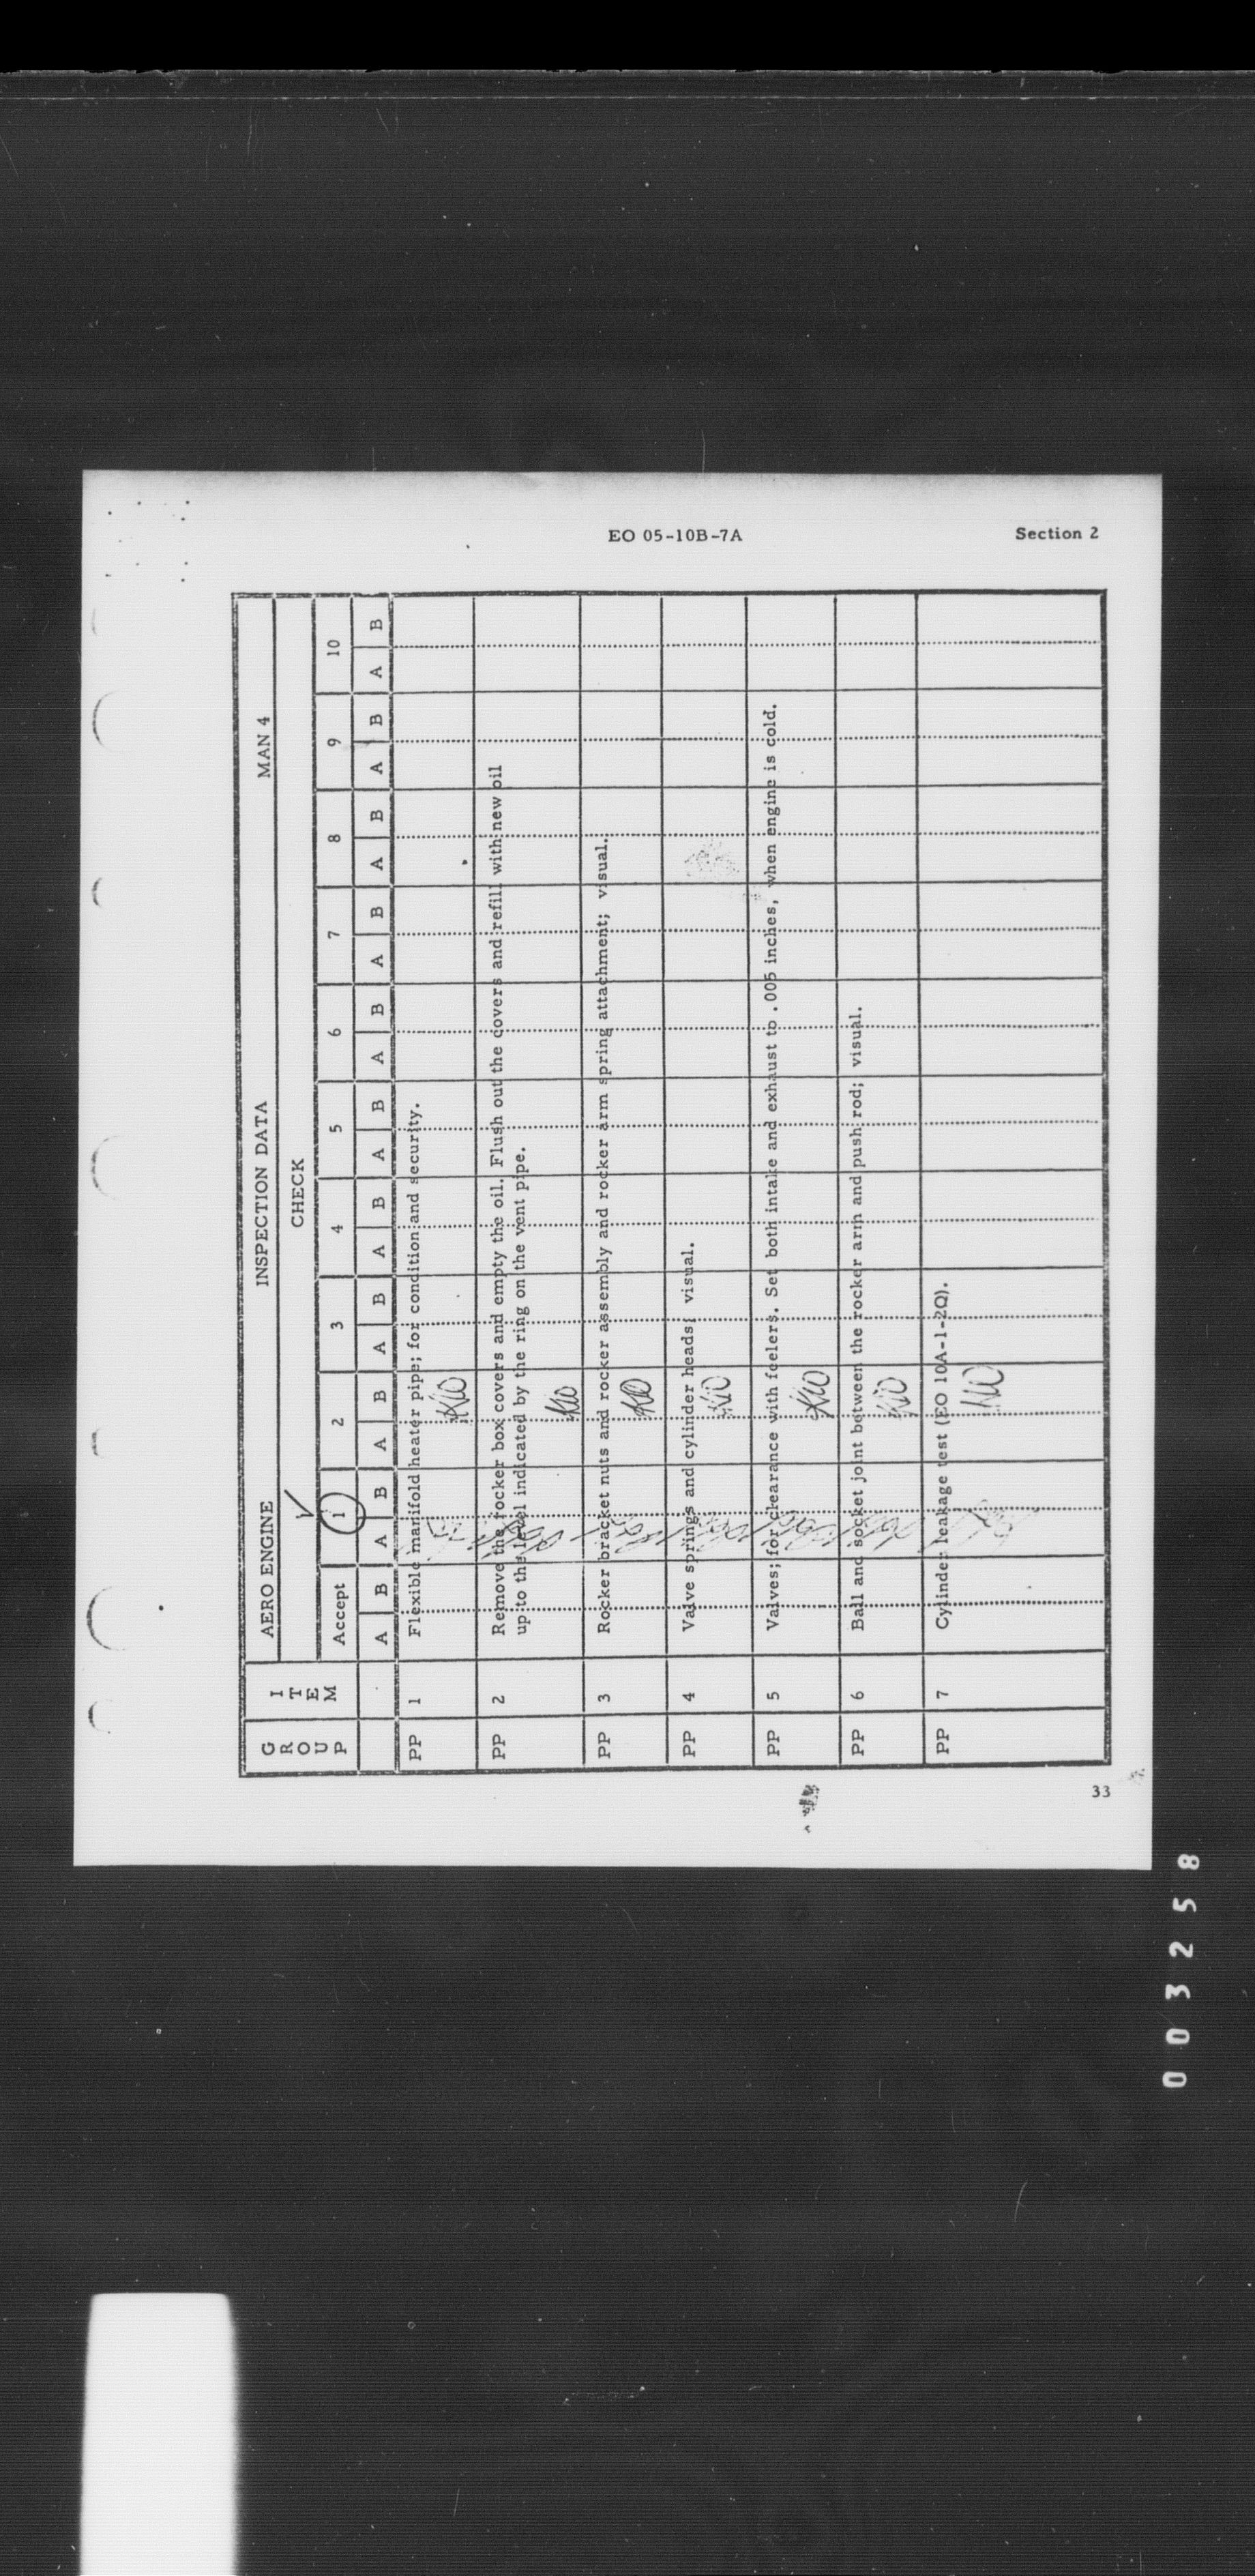 EO 05-10B-7A
Section 2
AERO ENGINE INSPECTION DATA MAN 4
GROUP ITEM CHECK
Accept 1 2 3 4 5 6 7 8 9 10
A B A B A B A B A B A B A B A B A B A B A B
PP 1 Flexible manifold heater pipe; for condition and security.
KW
PP 2 Remove the rocker box covers and empty the oil. Flush out the covers and refill with new oil
up to the level indicated by the ring on the vent pipe.
KW
PP 3 Rocker bracket nuts and rocker assembly and rocker arm spring attachment; visual.
KW
PP 4 Valve springs and cylinder heads; visual.
KW
PP 5 Valves; for clearance with feelers. Set both intake and exhaust to .005 inches, when engine is cold.
KW
PP 6 Ball and socket joint between the rocker arm and push rod; visual.
KW
PP 7 Cylinder leakage test (EO 10A-1-2Q).
KW
33
003258